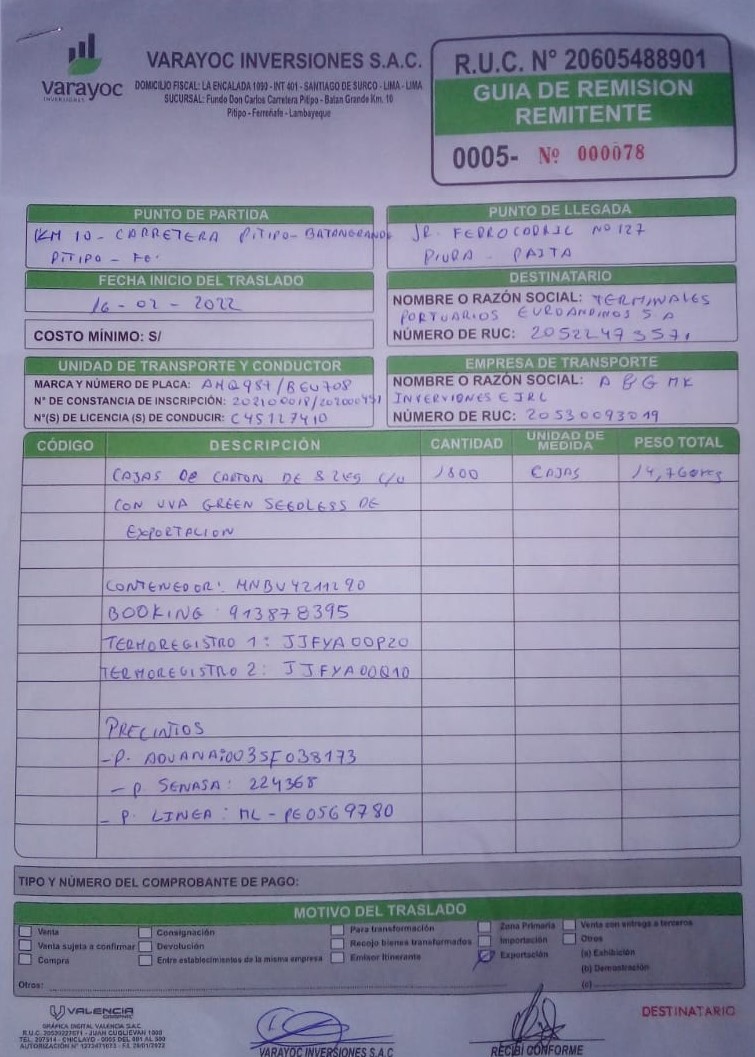 varayoc
INVERSIONES
VARAYOC INVERSIONES S.A.C.
DOMICILIO FISCAL: LA ENCALADA 1090 - INT 401 - SANTIAGO DE SURCO - LIMA - LIMA
SUCURSAL: Fundo Don Carlos Carretera Pitipo - Batan Grande Km. 10
Pitipo - Ferreñafe - Lambayeque
R.U.C. N° 20605488901
GUIA DE REMISION
REMITENTE
0005- Nº 000078
PUNTO DE PARTIDA
KM 10 - CARRETERA PITIPO - BATANGRANDE
PITIPO - FE.
PUNTO DE LLEGADA
JR. FERROCARRIL Nº 127
PIURA - PAITA
FECHA INICIO DEL TRASLADO
16 - 02 - 2022
COSTO MÍNIMO: S/
DESTINATARIO
NOMBRE O RAZÓN SOCIAL: TERMINALES
PORTUARIOS EUROANDINOS S A
NÚMERO DE RUC: 20522473571
UNIDAD DE TRANSPORTE Y CONDUCTOR
MARCA Y NÚMERO DE PLACA: ANQ987/BEU708
N° DE CONSTANCIA DE INSCRIPCIÓN:
N°(S) DE LICENCIA (S) DE CONDUCIR: C45127410
EMPRESA DE TRANSPORTE
NOMBRE O RAZÓN SOCIAL: A & G MK
INVERSIONES EJRL
NÚMERO DE RUC: 20530093019
CÓDIGO DESCRIPCIÓN CANTIDAD UNIDAD DE MEDIDA PESO TOTAL
CAJAS DE CARTON DE 8.2KG C/U 1800 CAJAS 14,760
CON UVA GREEN SEEDLESS DE
EXPORTACION
CONTENEDOR: MNBU4211290
BOOKING: 913878395
TERMOREGISTRO 1: JJFYA00P20
TERMOREGISTRO 2: JJFYA00Q10
PRECINTOS
- P. ADUANA: 0035F038173
- P SENASA: 224368
- P. LINEA: ML - PE0569780
TIPO Y NÚMERO DEL COMPROBANTE DE PAGO:
MOTIVO DEL TRASLADO
Venta Consignación Para transformación Zona Primaria Venta con entrega a terceros
Venta sujeta a confirmar Devolución Recojo bienes transformados Importación Otros
Compra Entre establecimientos de la misma empresa Emisor Itinerante Exportación (a) Exhibición
(b) Demostración
Otros: (c)
VALENCIA
GRÁFICA DIGITAL VALENCIA S.A.C.
VARAYOC INVERSIONES S.A.C
RECIBI CONFORME
DESTINATARIO